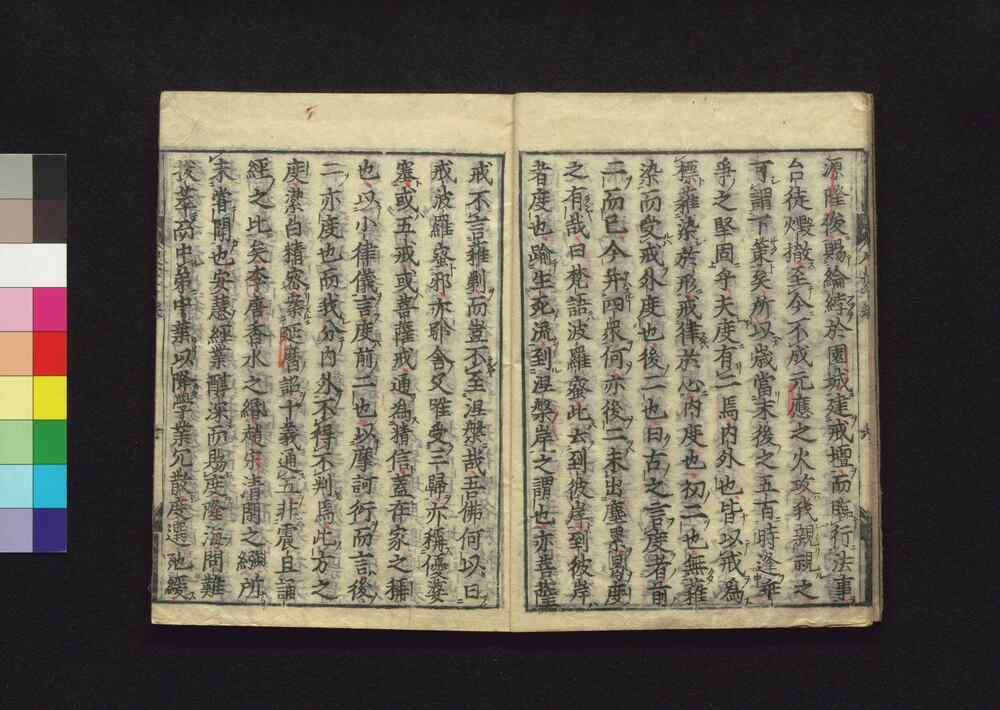 源隆後賜綸綍於園城建戒壇而臨行法事
台徒燬撤至今不成元應之火攻我親視之
可謂下策矣所以歳當末後之五百時逢乖
爭之堅固乎夫度有二焉内外也皆以戒為
標薙染於形戒律於心内度也初二也無薙
染而受戒外度也後二也曰古之言度者前
二而已今弁四衆何亦後二未出塵累爲度
之有哉曰梵語波羅蜜此云到彼岸到彼岸
者度也踰生死流到涅槃岸之謂也亦菩薩
戒不言薙剃而豈不至涅槃哉吾佛何以曰
戒波羅蜜邪亦聆舍又雖受三歸亦稱優婆
塞或五戒或菩薩戒通為猜信蓋在家之攝
也以小律儀言度前二也以摩訶衍而言後
二亦度也而我分内外不得不判焉此方之
度薬白精密桑延曆詔十義通五非虞且誦
經之比矣李唐香水之緡趙宋清閑之 所
未甞聞也安慧經業 深而賜度隆海問難
拔萃而中第中葉以降學業冗散度選弛緩